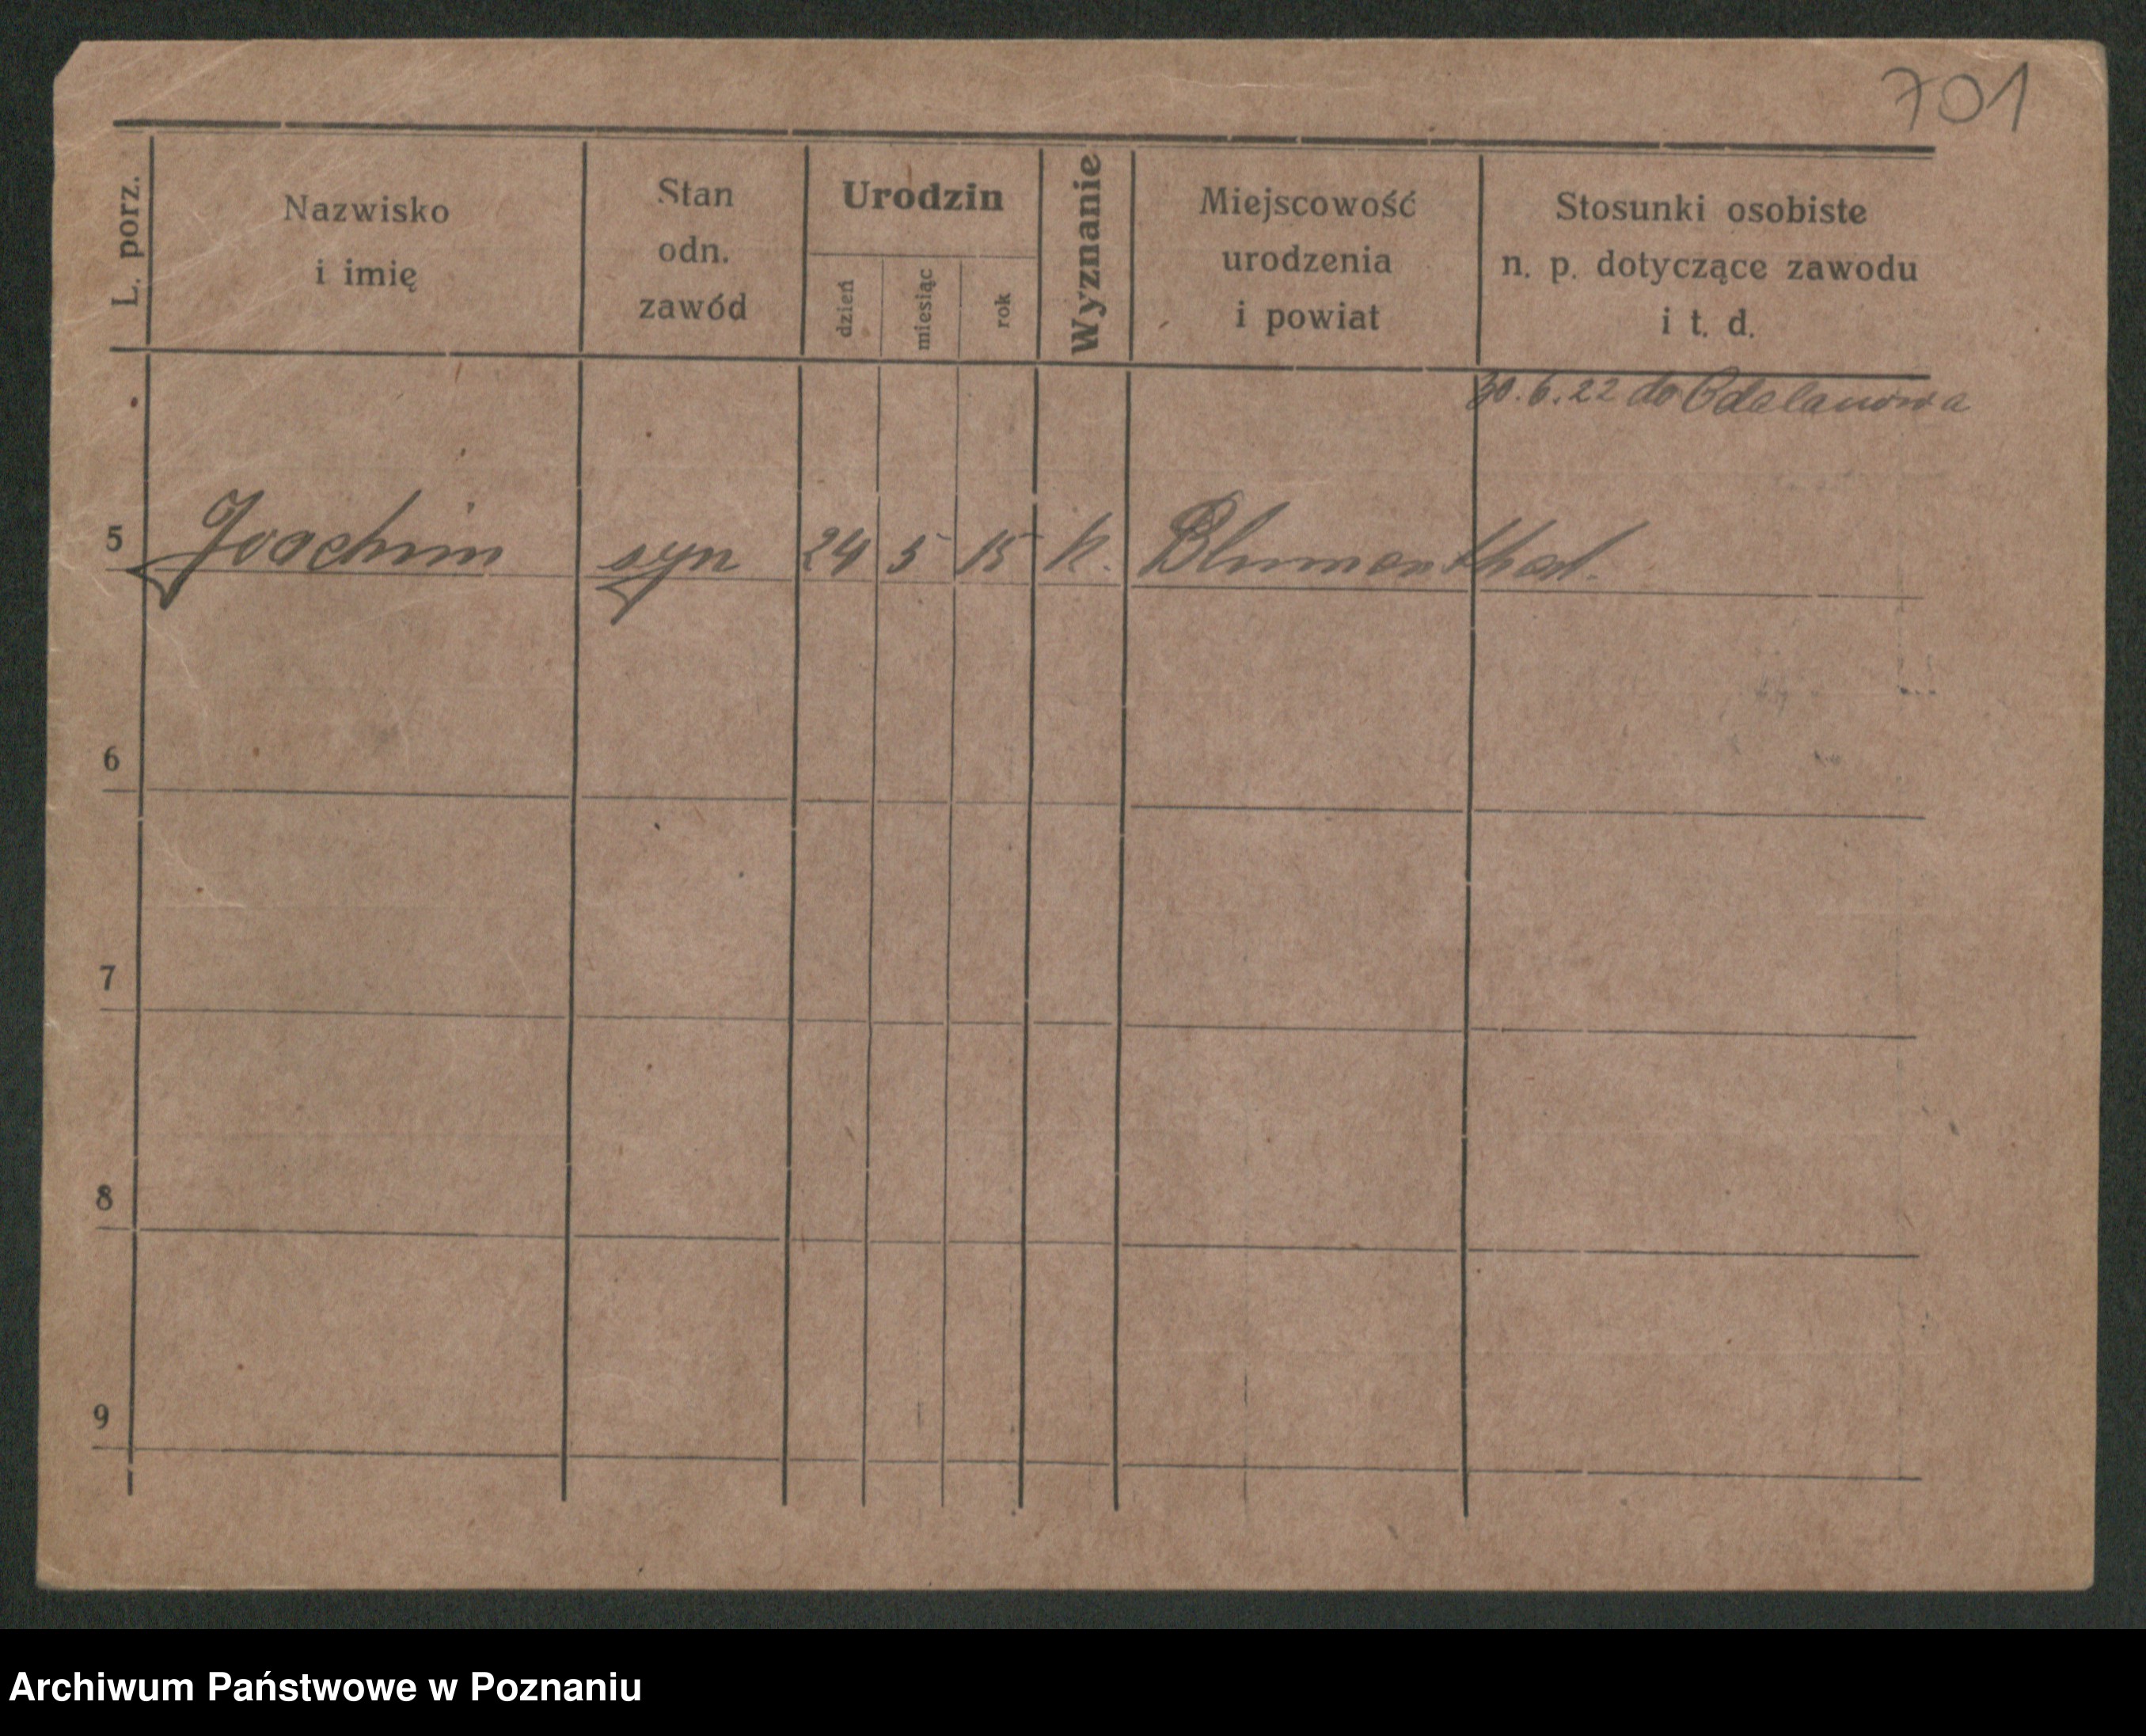 701
L. porz.
Nazwisko
i imię
Stan
odn.
zawód
Urodzin
dzień
miesiąc
rok
Wyznanie
Miejscowość
urodzenia
i powiat
Stosunki osobiste
n. p. dotyczące zawodu
i t. d.
30.6.22 do Odolanowa
5 Joachim syn 24 5 15 k. Blumenthal.
6
7
8
9
Archiwum Państwowe w Poznaniu